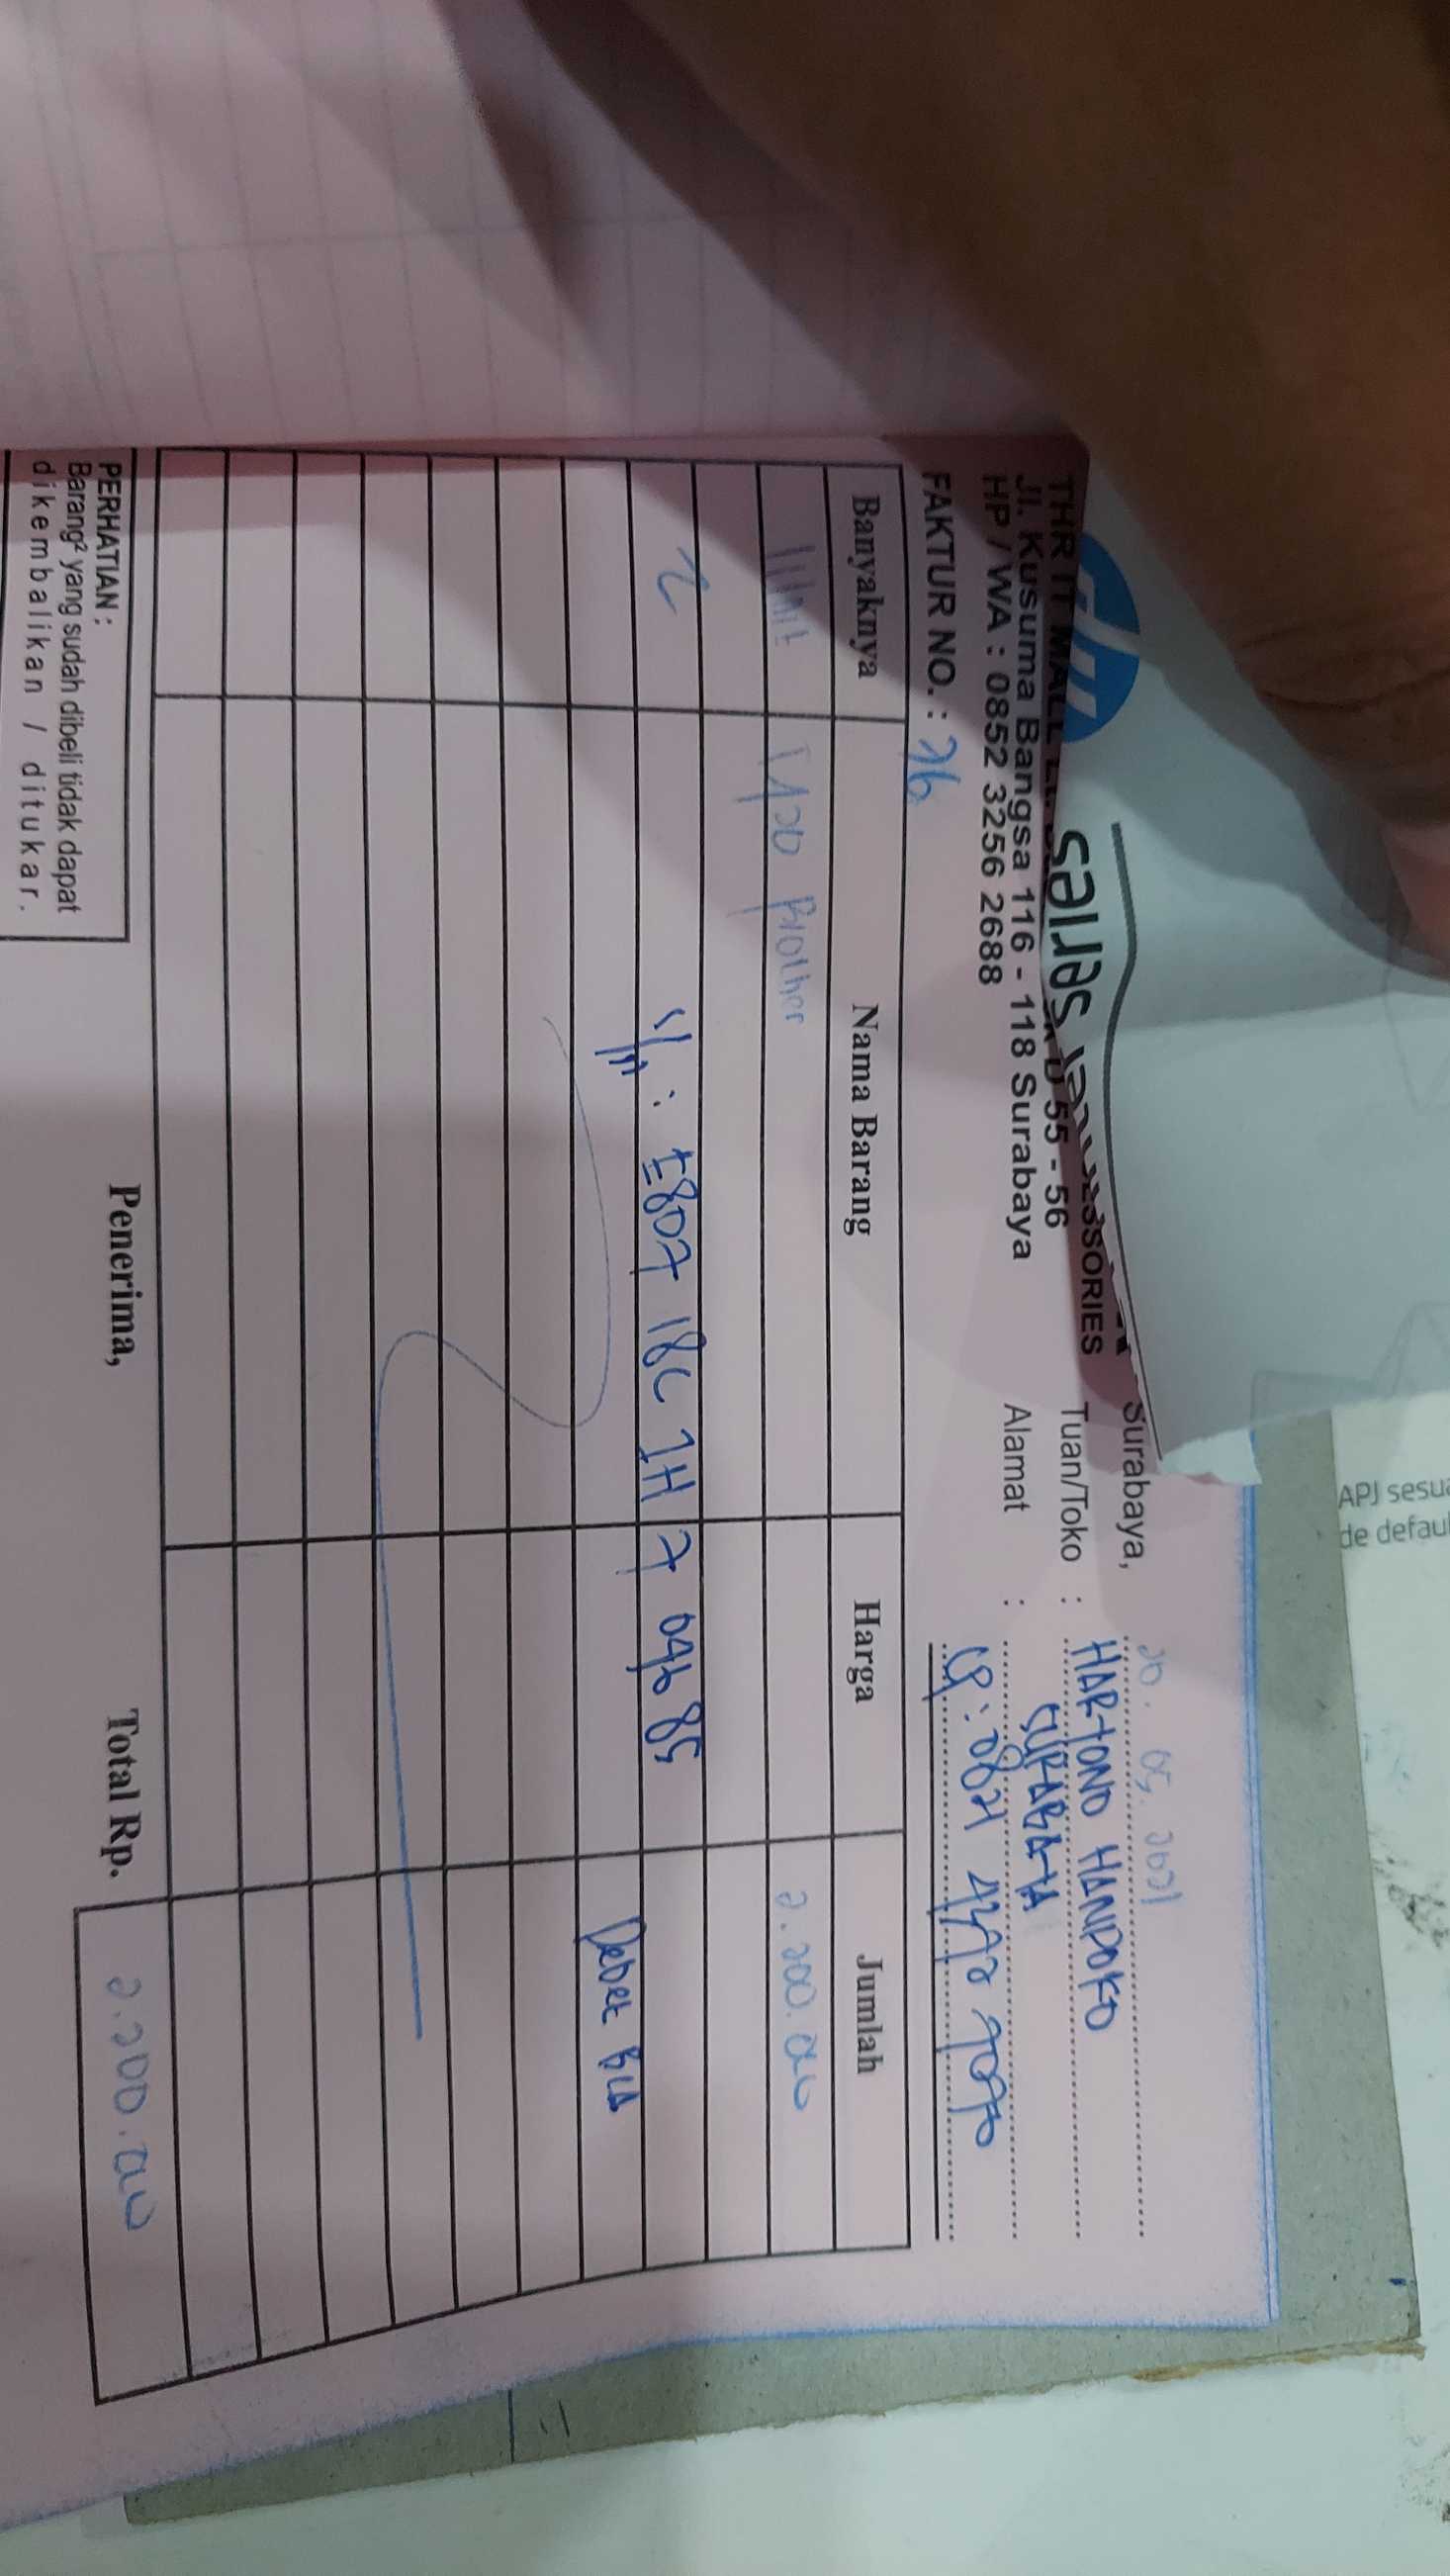 SORIES
THR IT MALL
D 55 - 56
Jl. Kusuma Bangsa 116 - 118 Surabaya
HP / WA : 0852 3256 2688
FAKTUR NO. : 26
Surabaya, 26. 05. 2021
Tuan/Toko : HARTONO HANDOKO
Alamat : SURABAYA
CP : 0821
Banyaknya Nama Barang Harga Jumlah
1 Unit Brother 2.200.000
S/N : E807 18C 1H 7 094685
Debet BCA
PERHATIAN :
Barang² yang sudah dibeli tidak dapat
dikembalikan / ditukar.
Penerima,
Total Rp. 2.200.000
APJ sesu
de defau